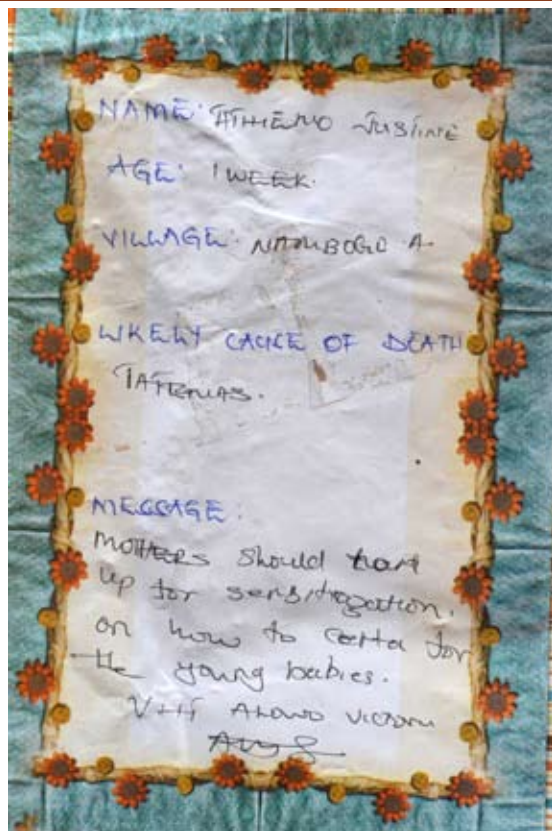 NAME: ATHIENO JUSTINE
AGE: 1 WEEK.
VILLAGE: NAMBOGO A.
LIKELY CAUSE OF DEATH
TATENUAS.
MESSAGE:
MOTHERS should turn
up for sensitization.
on how to catta for
the young babies.
VHT ADOWO VICTORIA